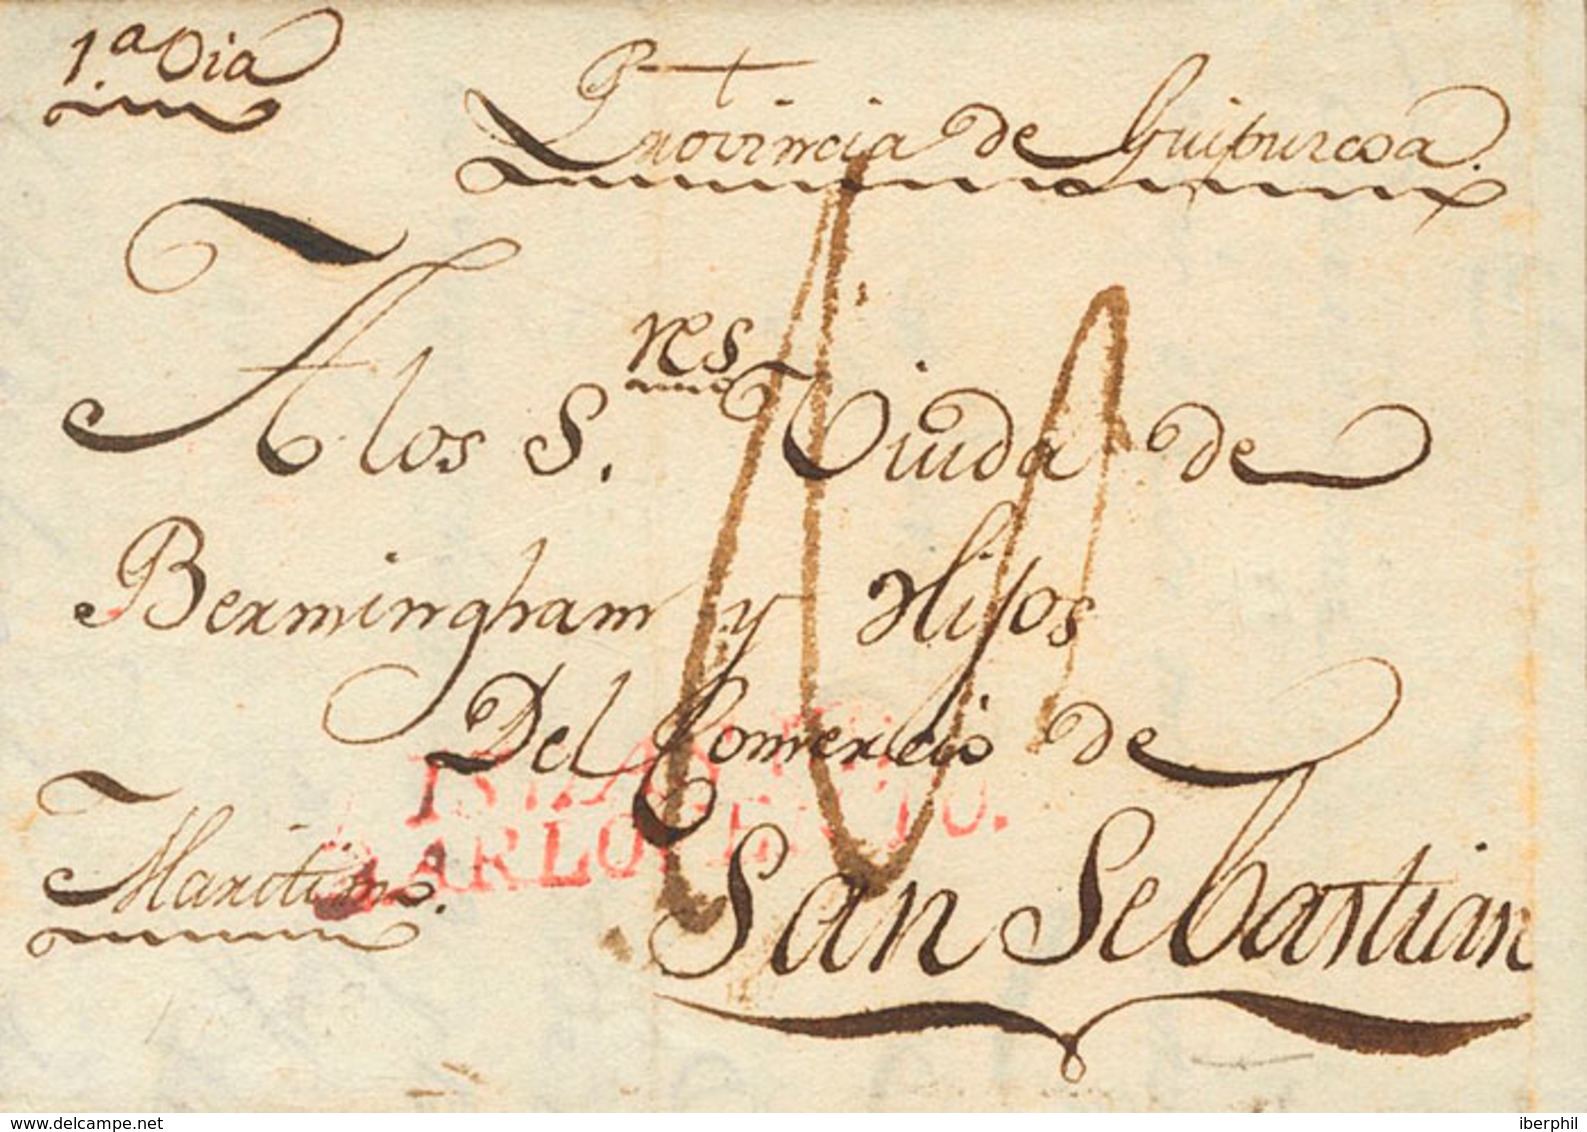 1.ª Dia
Provincia de Guipurcoa.
A los S.res Viuda de
Bermingham y Hijos
Del Comercio de
San Sebastian
Maritim.
www.delcampe.net
iberphil